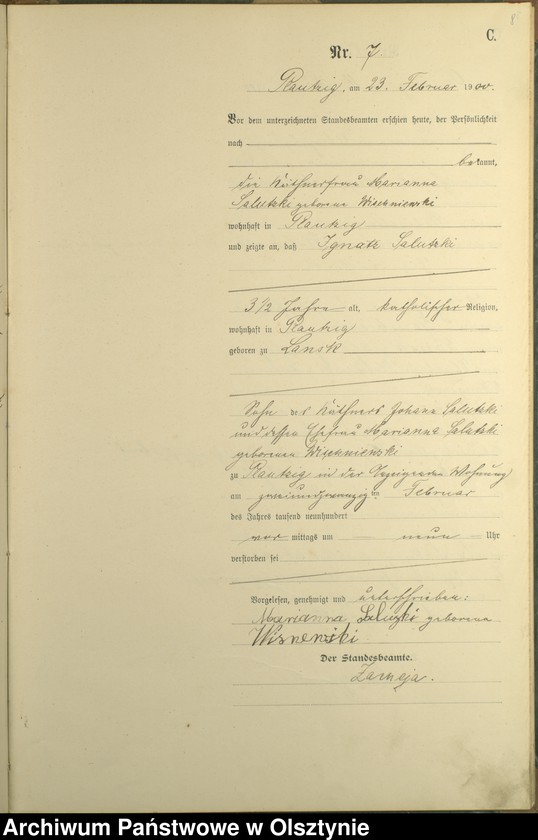 8
C.
Nr. 7
Rautzig, am 23. Februar 1900.
Vor dem unterzeichneten Standesbeamten erschien heute, der Persönlichkeit
nach
bekannt,
die Käthnerfrau Marianna
Salutzki geborene Wischniewski
wohnhaft in Rautzig
und zeigte an, daß Ignatz Salutzki
3 1/2 Jahre alt, katholischer Religion,
wohnhaft in Rautzig
geboren zu Lansk
Sohn des Käthners Johann Salutzki
und dessen Ehefrau Marianna Salutzki
geborenen Wischniewski
zu Rautzig in der Wohnung
am zweiundzwanzigten Februar
des Jahres tausend neunhundert
vor mittags um neun Uhr
verstorben sei
Vorgelesen, genehmigt und unterschrieben:
Marianna geborene
Wisnenski
Der Standesbeamte.
Archiwum Państwowe w Olsztynie